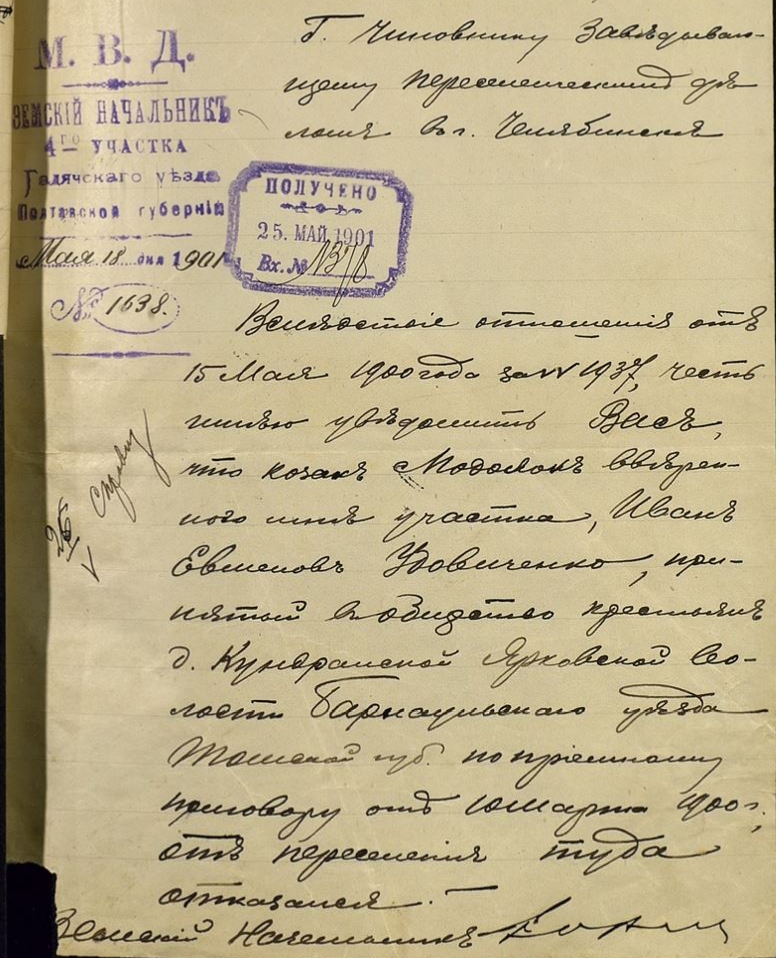 М. В. Д.
ЗЕМСКІЙ НАЧАЛЬНИКЪ
4го УЧАСТКА
Гадячскаго уѣзда
Полтавской губерніи
Мая 18 дня 1901
№ 1638.
Г. Чиновнику Завѣдываю-
щему переселенческимъ дѣ
ломъ въ г. Челябинскѣ
ПОЛУЧЕНО
25. МАЙ 1901
Вх. №
Вслѣдствіе отношенія отъ
15 Мая 1900 года за № 1937, честь
имѣю увѣдомить Васъ,
что козакъ ввѣрен-
ного мнѣ участка, Иванъ
Евменовъ Удовиченко, при-
нятый въ общество крестьянъ
д. Ярковской во-
лости Барнаульскаго уѣзда
Томской губ. по пріемному
приговору отъ 10 Марта 1900 г.,
отъ переселенія туда
отказался.
Земскій Начальникъ